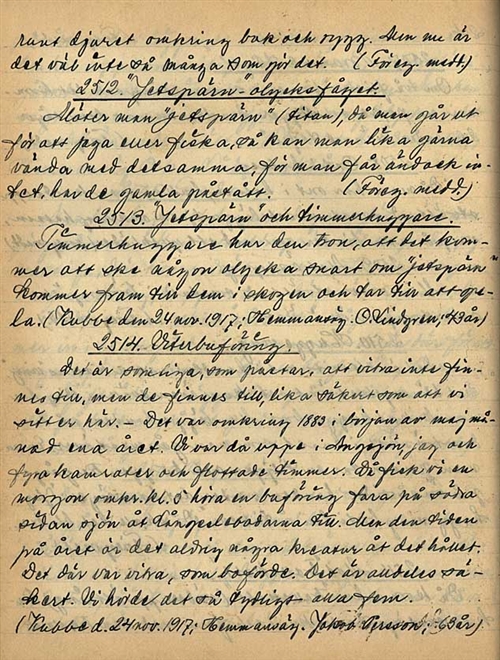 runt djuret omkring bak och rygg. Men nu är
det väl inte så många som gör det. (Föreg. medd.)
2512. "Jetspärn"-olycksfågel.
Möter man "jetspärn" (titan), då man går ut
för att jaga eller fiska, så kan man lika gärna
vända med detsamma, för man får ändock in-
tet, har de gamla påstått. (Föreg. medd.)
2513. "Jetspärn" och timmerhuggare.
Timmerhuggare har den tron, att det kom-
mer att ske någon olycka snart om "jetspärn"
kommer fram till dem i skogen och tar till att ga-
la. (Kubbe den 24 nov. 1917; Hemmansäg. O. Lindgren, 43 år)
2514. Viterbuföring.
Det är somliga, som påstår, att vitra inte fin-
nes till, men de finnes till, lika säkert som att vi
sitter här. - Det var omkring 1883 i början av maj må-
nad ena året. Vi var då uppe i Angsjön, jag och
fyra kamrater och flottade timmer. Då fick vi en
morgon omkr. kl. 5 höra en buföring fara på södra
sidan sjön åt Långselebodarna till. Men den tiden
på året är det aldrig några kreatur åt det hållet.
Det där var vitra, som buförde. Det är alldeles sä-
kert. Vi hörde det så tydligt alla fem.
(Kubbe d. 24 nov. 1917; Hemmansäg. Jakob Persson, 63 år)